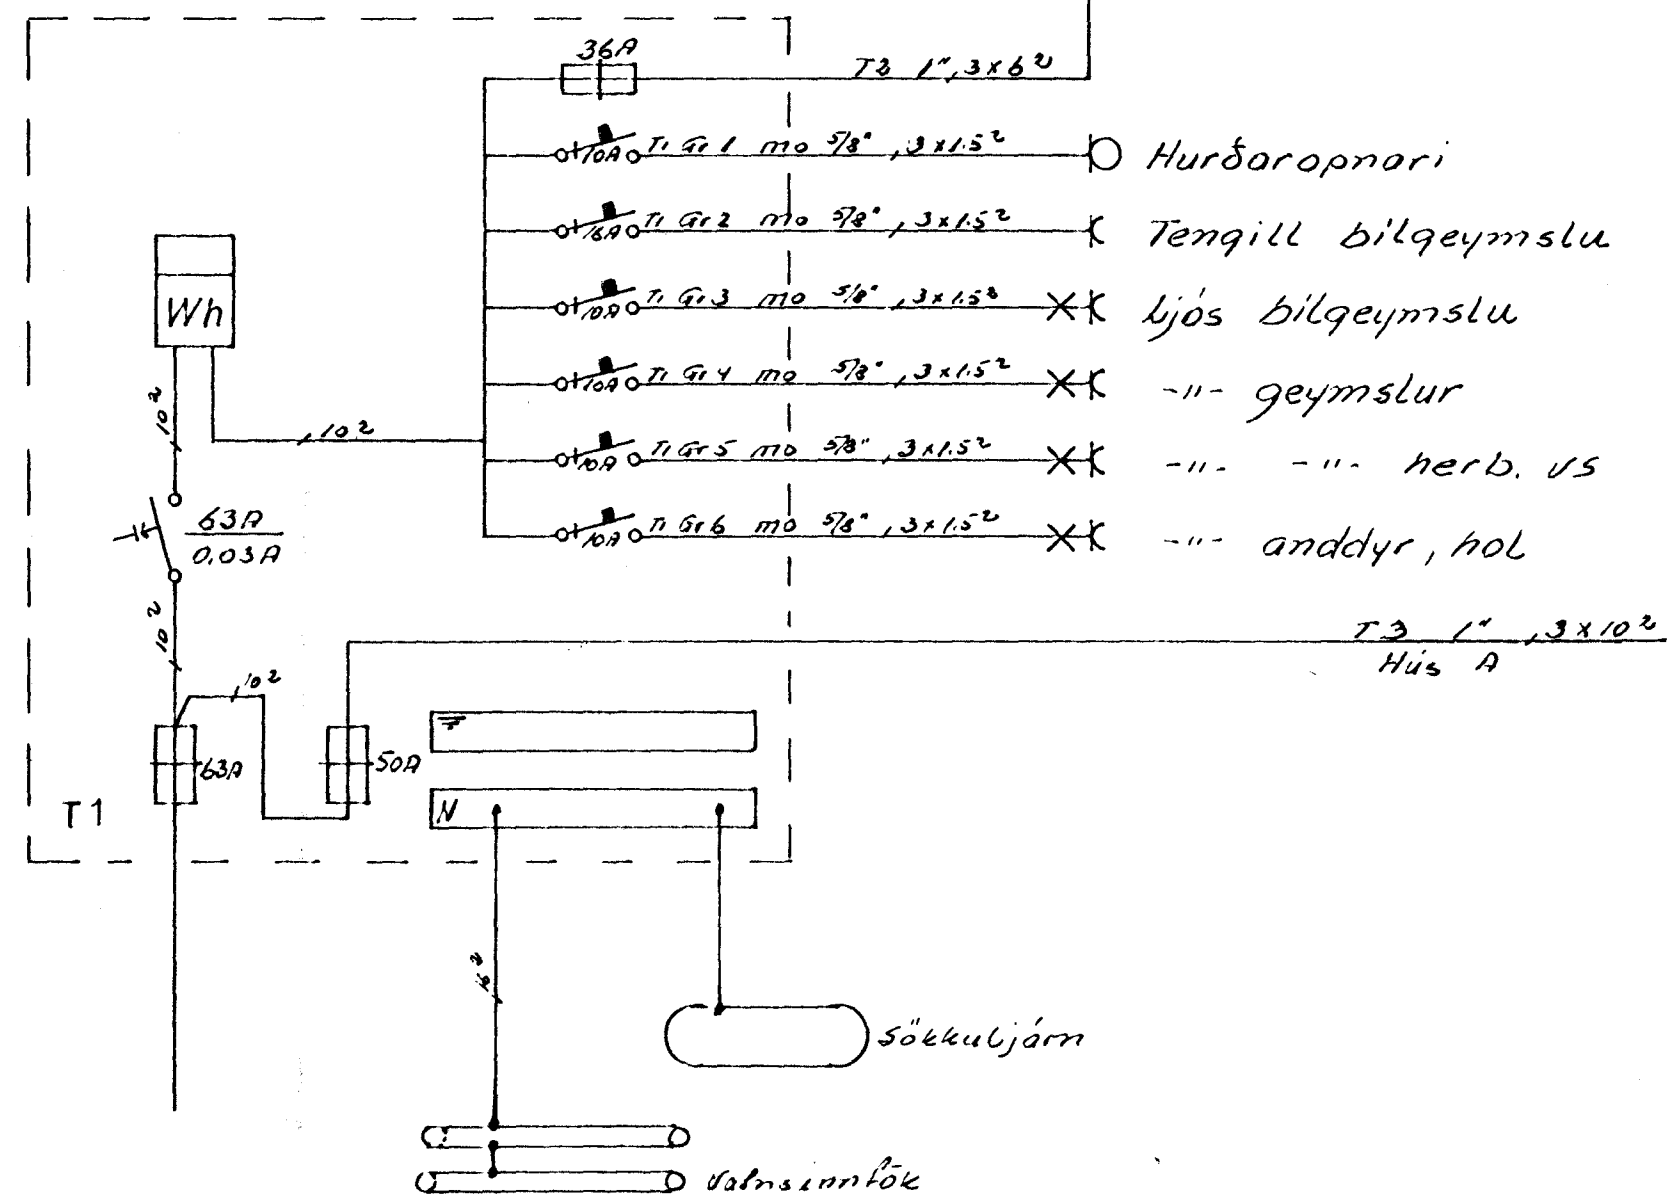 36A
T2 1", 3×6²
10A T1 Gr 1 mo 5/8", 3×1.5² Hurðaropnari
16A T1 Gr 2 mo 5/8", 3×1.5² Tengill bílgeymslu
10A T1 Gr 3 mo 5/8", 3×1.5² Ljós bílgeymslu
10A T1 Gr 4 mo 5/8", 3×1.5² -"- geymslur
10A T1 Gr 5 mo 5/8", 3×1.5² -"- -"- herb. VS
10A T1 Gr 6 mo 5/8", 3×1.5² -"- anddyr, hol
Wh
10²
10²
63A
0.03A
10²
T3 1", 3×10²
Hús A
10²
63A
50A
T1
N
16²
Sökkuljárn
Vatnsinntök